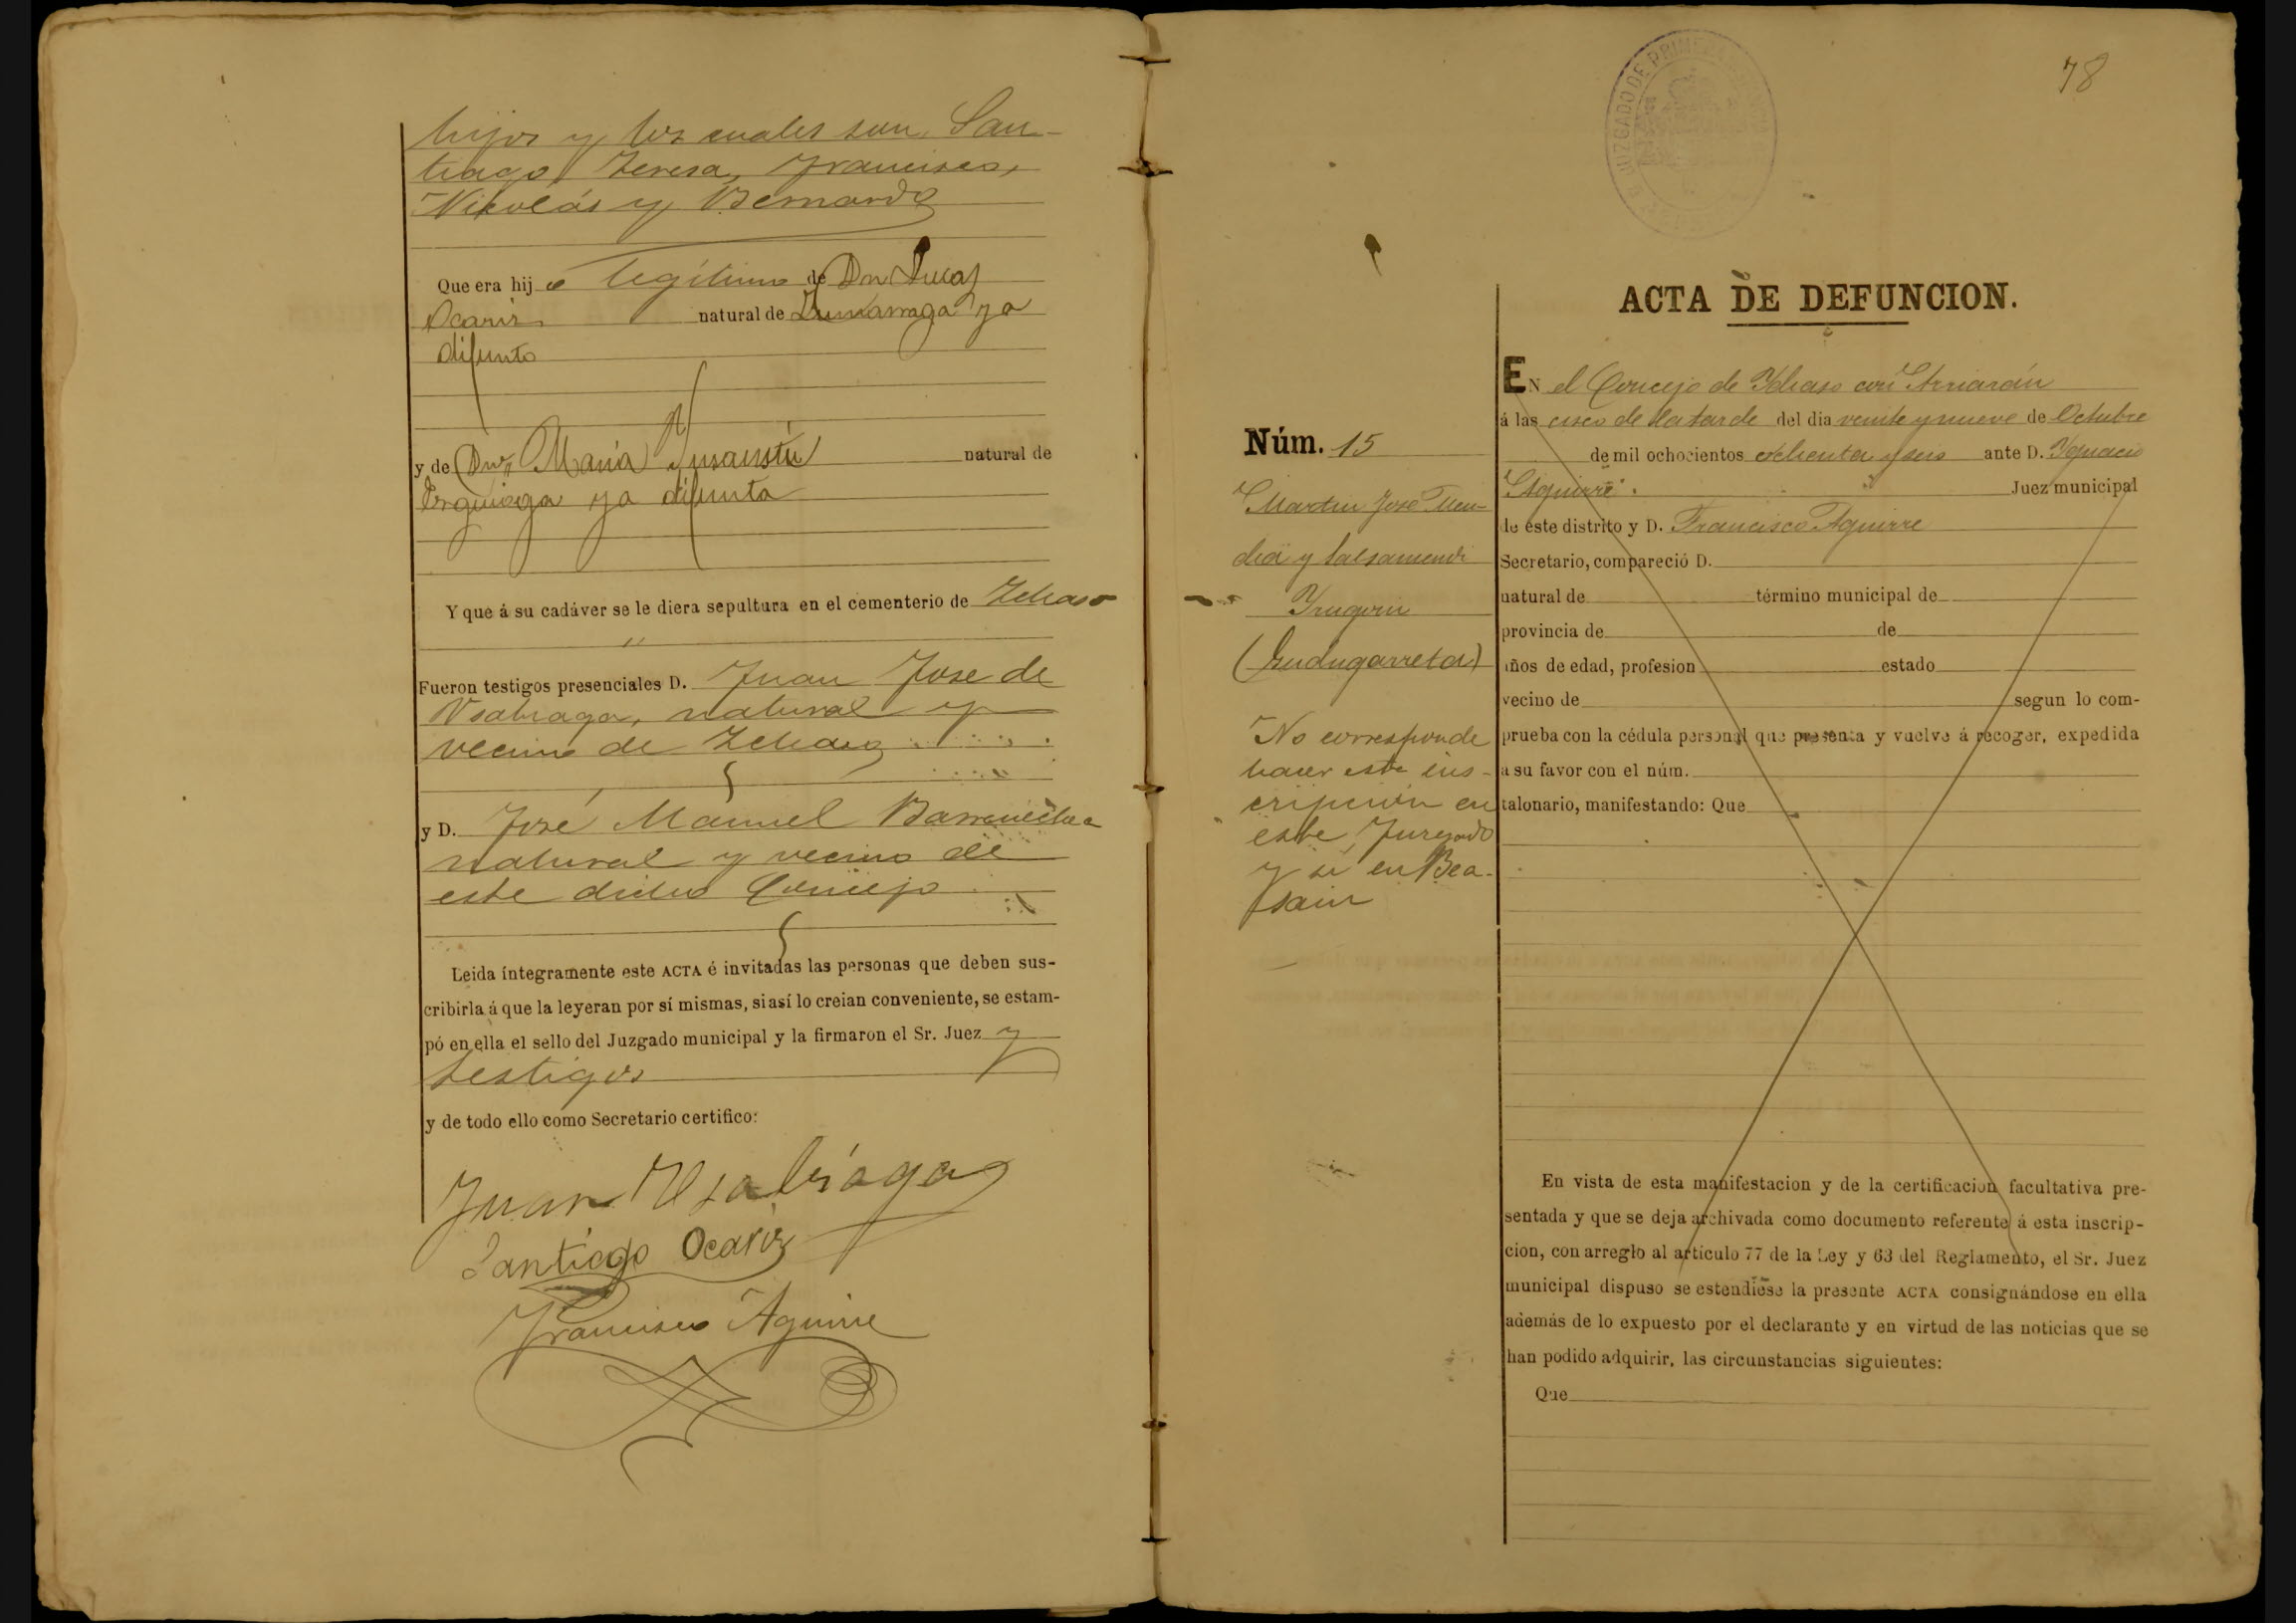 hijos y los cuales son, San-
tiago, Teresa, Francisco,
Nikolás y Bernardo
Que era hijo legítimo de Dn Lucas
Ocariz natural de Zumarraga ya
difunto
y de Dña María natural de
Ezquioga ya difunta
Y que á su cadáver se le diera sepultura en el cementerio de Ichaso
"
Fueron testigos presenciales D. Juan Jose de
Usabiaga, natural y
vecino de Ichaso
y D. José Manuel Barrenechea
natural y vecino de
este dicho Concejo
Leida íntegramente este ACTA é invitadas las personas que deben sus-
cribirla á que la leyeran por sí mismas, si así lo creian conveniente, se estam-
pó en ella el sello del Juzgado municipal y la firmaron el Sr. Juez y
testigos
y de todo ello como Secretario certifico:
Juan Usabiaga
Santiago Ocariz
Francisco Aguirre
78
JUZGADO DE PRIMERA
ACTA DE DEFUNCION.
Núm. 15
Martin José Men-
dia y Salsamendi
(Gudugarreta)
No corresponde
hacer esta ins-
cripción en
este Juzgado
y si en Bea-
sain
EN el Concejo de Ichaso con Arriarán
á las cinco de la tarde del dia veinte y nueve de Octubre
de mil ochocientos ochenta y seis ante D. Ygnacio
Aguirre Juez municipal
de este distrito y D. Francisco Aguirre
Secretario, compareció D.
natural de término municipal de
provincia de de
años de edad, profesion estado
vecino de segun lo com-
prueba con la cédula personal que presenta y vuelve á recoger, expedida
a su favor con el núm.
talonario, manifestando: Que
En vista de esta manifestacion y de la certificacion facultativa pre-
sentada y que se deja archivada como documento referente á esta inscrip-
cion, con arreglo al artículo 77 de la Ley y 63 del Reglamento, el Sr. Juez
municipal dispuso se estendiese la presente ACTA consignándose en ella
además de lo expuesto por el declarante y en virtud de las noticias que se
han podido adquirir, las circunstancias siguientes:
Que